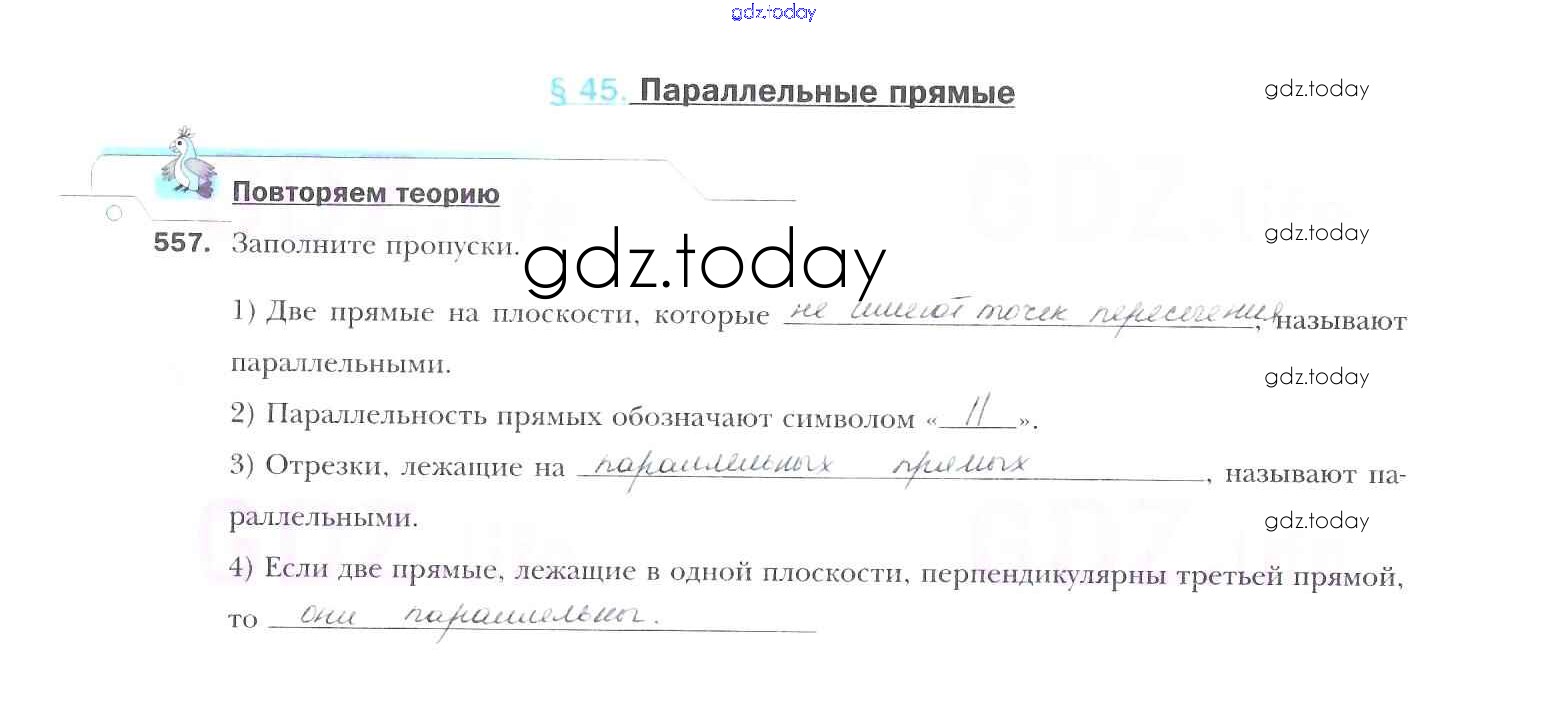 gdz.today
§ 45. Параллельные прямые
gdz.today
Повторяем теорию
557. Заполните пропуски.
gdz.today
gdz.today
1) Две прямые на плоскости, которые не имеют точек пересечения, называют
параллельными.
gdz.today
2) Параллельность прямых обозначают символом «||».
3) Отрезки, лежащие на параллельных прямых, называют па-
раллельными.
gdz.today
4) Если две прямые, лежащие в одной плоскости, перпендикулярны третьей прямой,
то они параллельны.